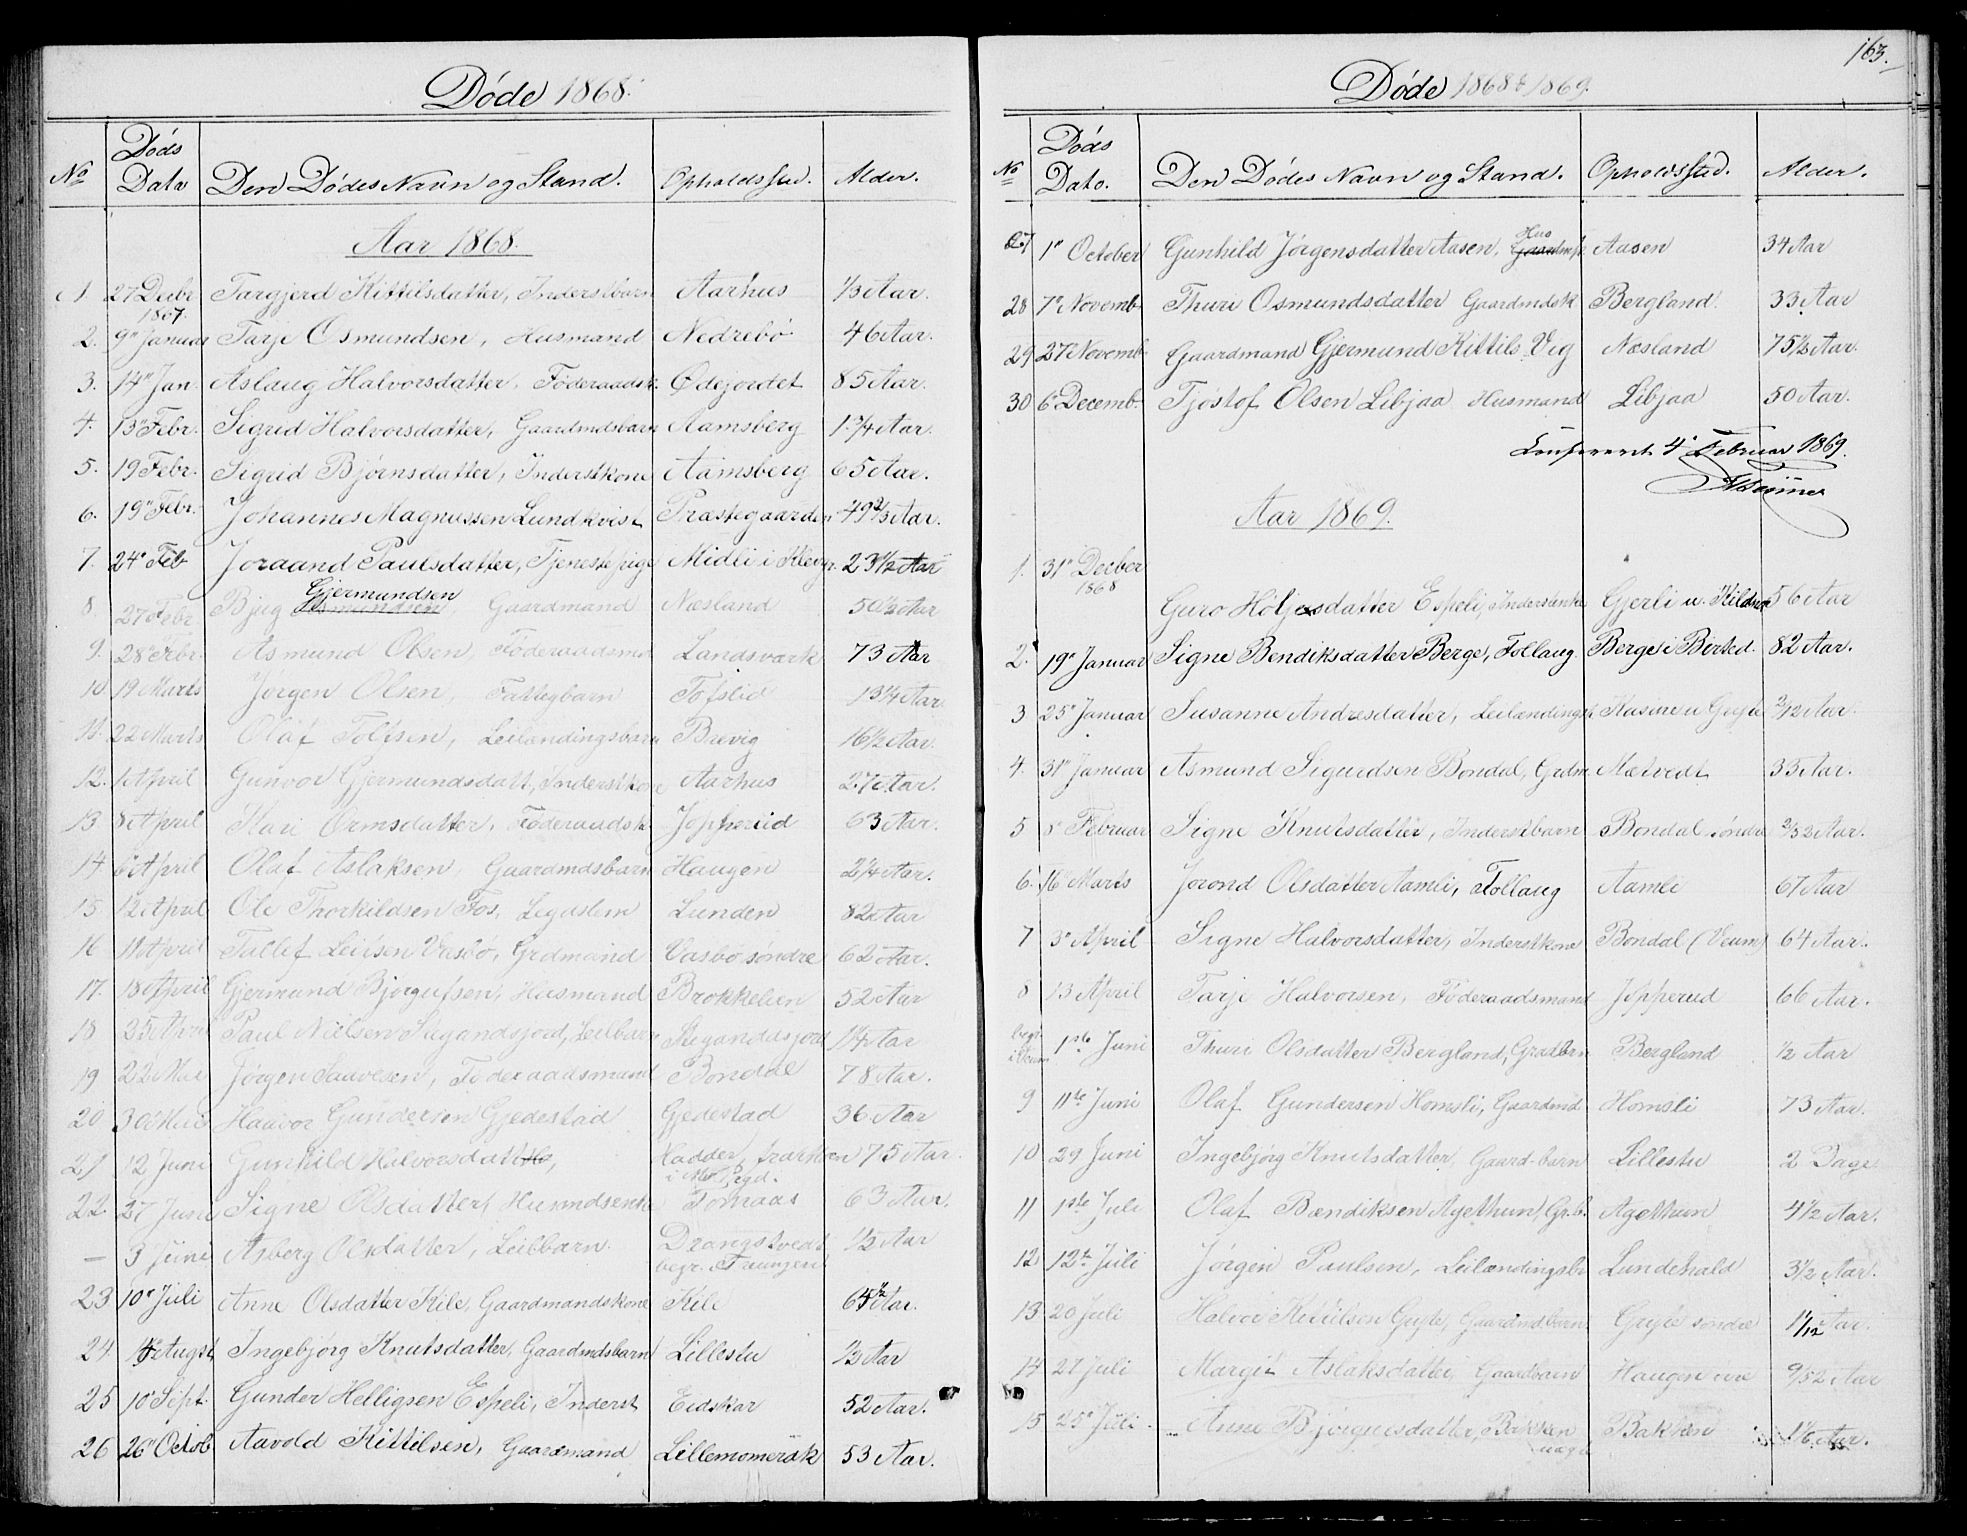 Døde 1868.
No Døds Dato Den Dødes Navn og Stand. Opholdssted. Alder.
Aar 1868.
1. 27 Decbr 1867. Targjerd Kittilsdatter, Inderstbarn Aarhus 1/3 Aar.
2. 9" Januar Tarje Osmundsen, Husmand Nedrebö 46 Aar.
3. 14" Jan. Aslaug Halvorsdatter, Föderaadsk. Ødejordet 85 Aar.
4. 13" Febr. Sigrid Halvorsdatter, Gaardmdsbarn Aamsberg 1 3/4 Aar.
5. 19 Febr. Sigrid Bjørnsdatter, Inderstkone Aamsberg 65 Aar.
6. 19" Febr. Johannes Magnussen Lundkvist Præstegaarden 49 2/3 Aar.
7. 24" Feb Joraand Paulsdatter, Tjenestepige Midli i 23 1/2 Aar
8 27 Febr Bjug Gjermundsen Gaardmand Næsland 50 1/2 Aar
9. 28" Febr. Asmund Olsen, Föderaadsmd Landsværk 73 Aar
10 19 Marts Jørgen Olsen, Fattigbarn Tofslid 13 1/4 Aar
11. 22 Marts Olaf Tolfsen, Leilændingsbarn Brevig 16 1/2 Aar.
12. 1 April Gunvor Gjermundsdatt, Inderstkone Aarhus 27 Aar.
13 8 April Kari Ormsdatter, Föderaadsk. Jopperud 63 Aar.
14 6" April Olaf Aslaksen, Gaardmdsbarn Haugen 2 1/4 Aar.
15. 12 April Ole Thorkildsen Fos, Legdslem Lunden 82 Aar
16 11 April Tallef Leifsen Vasbø, Grdmand Vasbø søndre 62 Aar.
17. 13 April Gjermund Bjørgufsen, Husmand Brokkelien 52 Aar
18 25 April Paul Nielsen Sigandsjord, Leilbarn Sigandsjord 14 Aar
19 22 Mai Jørgen Saavesen, Föderaadsmand Bondal 78 Aar.
20 30 Mai Haavor Gundersen Gjedestad Gjedestad 36 Aar
21 12 Juni Gunhild Halvorsdatter, Hadder, i Mo Prgd. 75 Aar.
22. 27 Juni Signe Olsdatter, Husmdsenke Tomaas 63 Aar.
– 3 Juni Asberg Olsdatter, Leilbarn. Drangstvedt begr. Traungen 1/2 Aar
23 10" Juli Anne Olsdatter Kile, Gaardmandskone Kile 64 1/2 Aar.
24. Augst. Ingebjørg Knutsdatter, Gaardmdsbarn Lillestu 1/2 Aar
25 10" Sept. Gunder Helligsen Espeli, Inderst Eidskar 52 Aar.
26 26" Octob Aavold Kittilsen, Gaardmand Lillemomerak 53 Aar.
163.
Døde 1868 & 1869.
No Døds Dato. Den Dødes Navn og Stand. Opholdssted. Alder.
27 1" October Gunhild Jörgensdatter Aasen, Hus Aasen 34 Aar
28 7" Novemb. Thuri Osmundsdatter Gaardmdsk Bergland. 33 Aar
29 27" Novemb. Gaardmand Gjermund Kittils. Vig Næsland 75 1/2 Aar.
30 6" Decemb. Tjöstof Olsen Libjaa Husmand Libjaa 50 Aar.
Confereret 4" Februar 1869.
Aar 1869.
1. 31" Decber 1868 Guro Höljesdatter Espeli, Inderstenke Gjerli u. Kildal 56 Aar
2. 19" Januar Signe Bendiksdatter Berge, Follaug. Berge i Bersted. 82 Aar.
3 25" Januar Susanne Andresdatter, Leilændingsb 2/12 Aar.
4. 31" Januar Asmund Sigurdsen Bondal, Grdm. Nætvedt 33 Aar.
5 5" Februar Signe Knutsdatter, Inderstbarn Bondal söndre 2/52 Aar.
6. 16" Marts Jorond Olsdatter Aamli, Follaug Aamli 67 Aar
7 3" April Signe Halvorsdatter, Inderstkone Bondal (Veum) 64 Aar.
8 13 April Tarje Halvorsen, Föderaadsmand Jopperud 66 Aar.
begr. i Veum 1ste Juni Thuri Olsdatter Bergland, Grdbrn Bergland 1/2 Aar
9 11te Juni Olaf Gundersen Homsli, Gaardmd. Homsli 73 Aar.
10 29 Juni Ingebjørg Knutsdatter, Gaard-barn Lillestu 2 Dage
11 1ste Juli Olaf Bændiksen Agethun, Gr.b. Agethun 4 1/2 Aar.
12 12te Juli Jørgen Paulsen, Leilændingsb Lundehald 3 1/2 Aar.
13 20 Juli Halvor Kittilsen Grefte, Gaardmdbarn Grefte søndre 1/12 Aar.
14 27 Juli Margit Aslaksdatter, Gaardbarn Haugen 9/52 Aar
15 25" Juli Anne Bjørgufsdatter, Bakken Bakken 1 1/6 Aar.